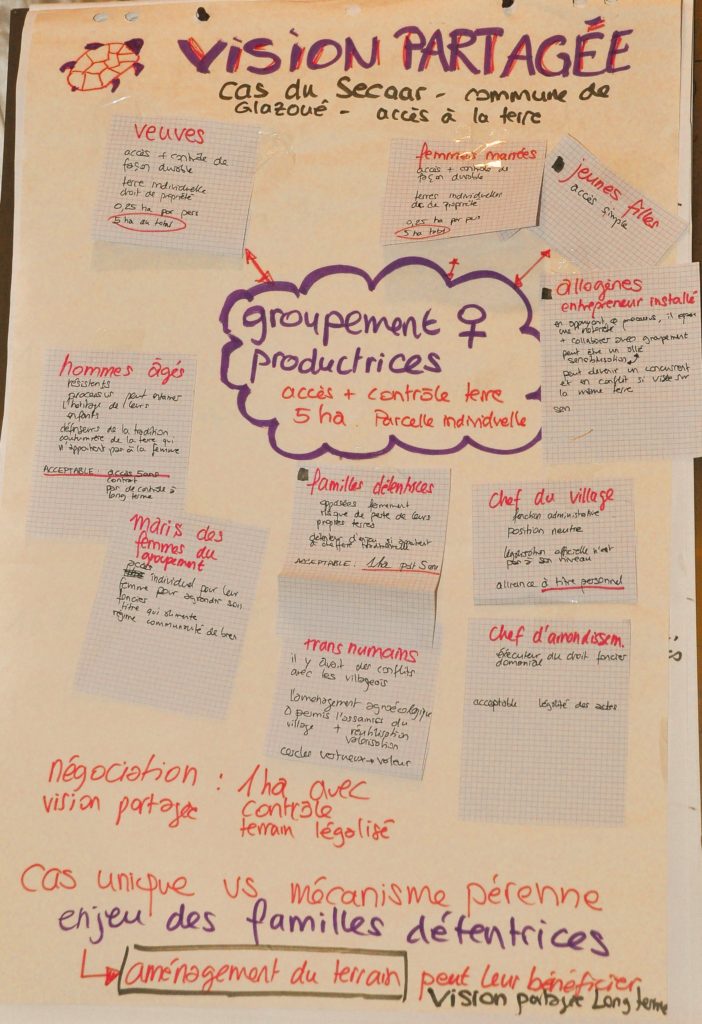 VISION PARTAGÉE
cas du Secaar - commune de
Glazoué - accès à la terre
veuves
accès + contrôle de
façon durable
terre individuelle
droit de propriété
0,25 ha par pers
5 ha au total
femmes mariées
accès + contrôle de
façon durable
terres individuelles
de propriété
0,25 ha par pers
5 ha total
jeunes filles
accès simple
allogènes
entrepreneur installé
en appuyant ce processus, il
une notoriété
+ collaborer avec groupement
peut être un allié
sensibilisation
peut devenir un concurrent
et en conflit si visée sur
la même terre
sen
groupement ♀
productrices
accès + contrôle terre
5 ha Parcelle individuelle
hommes âgés
résistents
processus peut
l'héritage de leurs
enfants
défenseurs de la tradition
coutumière de la terre qui
n'appartient pas à la femme
ACCEPTABLE: accès 5ans
contrat
pas de contrôle à
long terme
maris des
femmes du
groupement
accès
individuel pour leur
femme pour agrandir son
foncier
titre qui alimente
régime communauté de biens
familles détentrices
opposées fermement
risque de perte de leurs
propres terres
ACCEPTABLE: 1ha 5 ans
Chef du village
fonction administrative
position neutre
officielle n'est
pas à son niveau
alliance à titre personnel
transhumains
il y avait des conflits
avec les villageois
l'aménagement agroécologique
a permis du
village + réutilisation
valorisation
cercles vertueux
Chef d'arrondissem.
Exécuteur du droit foncier
domanial
acceptable légalité des actes
négociation : 1ha avec
vision partagée contrôle
terrain légalisé
cas unique vs mécanisme pérenne
enjeu des familles détentrices
↳ aménagement du terrain peut leur bénéficier
Vision partagée Long terme